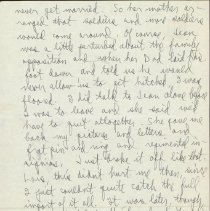 never get married. So her mother ar-
ranged that soldiers and more soldiers
would come around. Of course, Jean
was a little perturbed about the family
opposition and when her Dad said the
foot down and told us he would
never allow us to get hitched, I was
floored. I did talk to Jean along before
I was to leave and she said we'd
have to quit altogether. She gave me
back my pictures and letters, and
frat pin and ring and regimental in-
signias. I just broke it off like that.
Lois, this didn't hurt me then, since
I just couldn't quite catch the full
import of it all. It was later, though